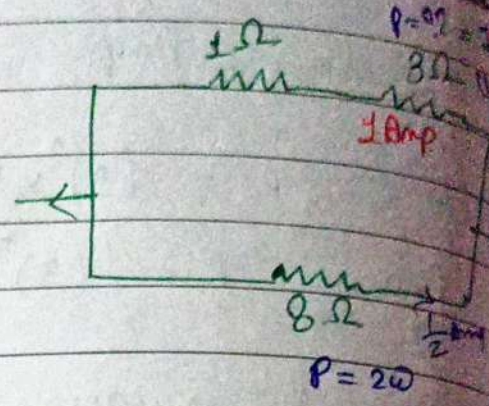 P=
1Ω
3Ω
1 Amp
8Ω
1/2 Amp
P = 2W